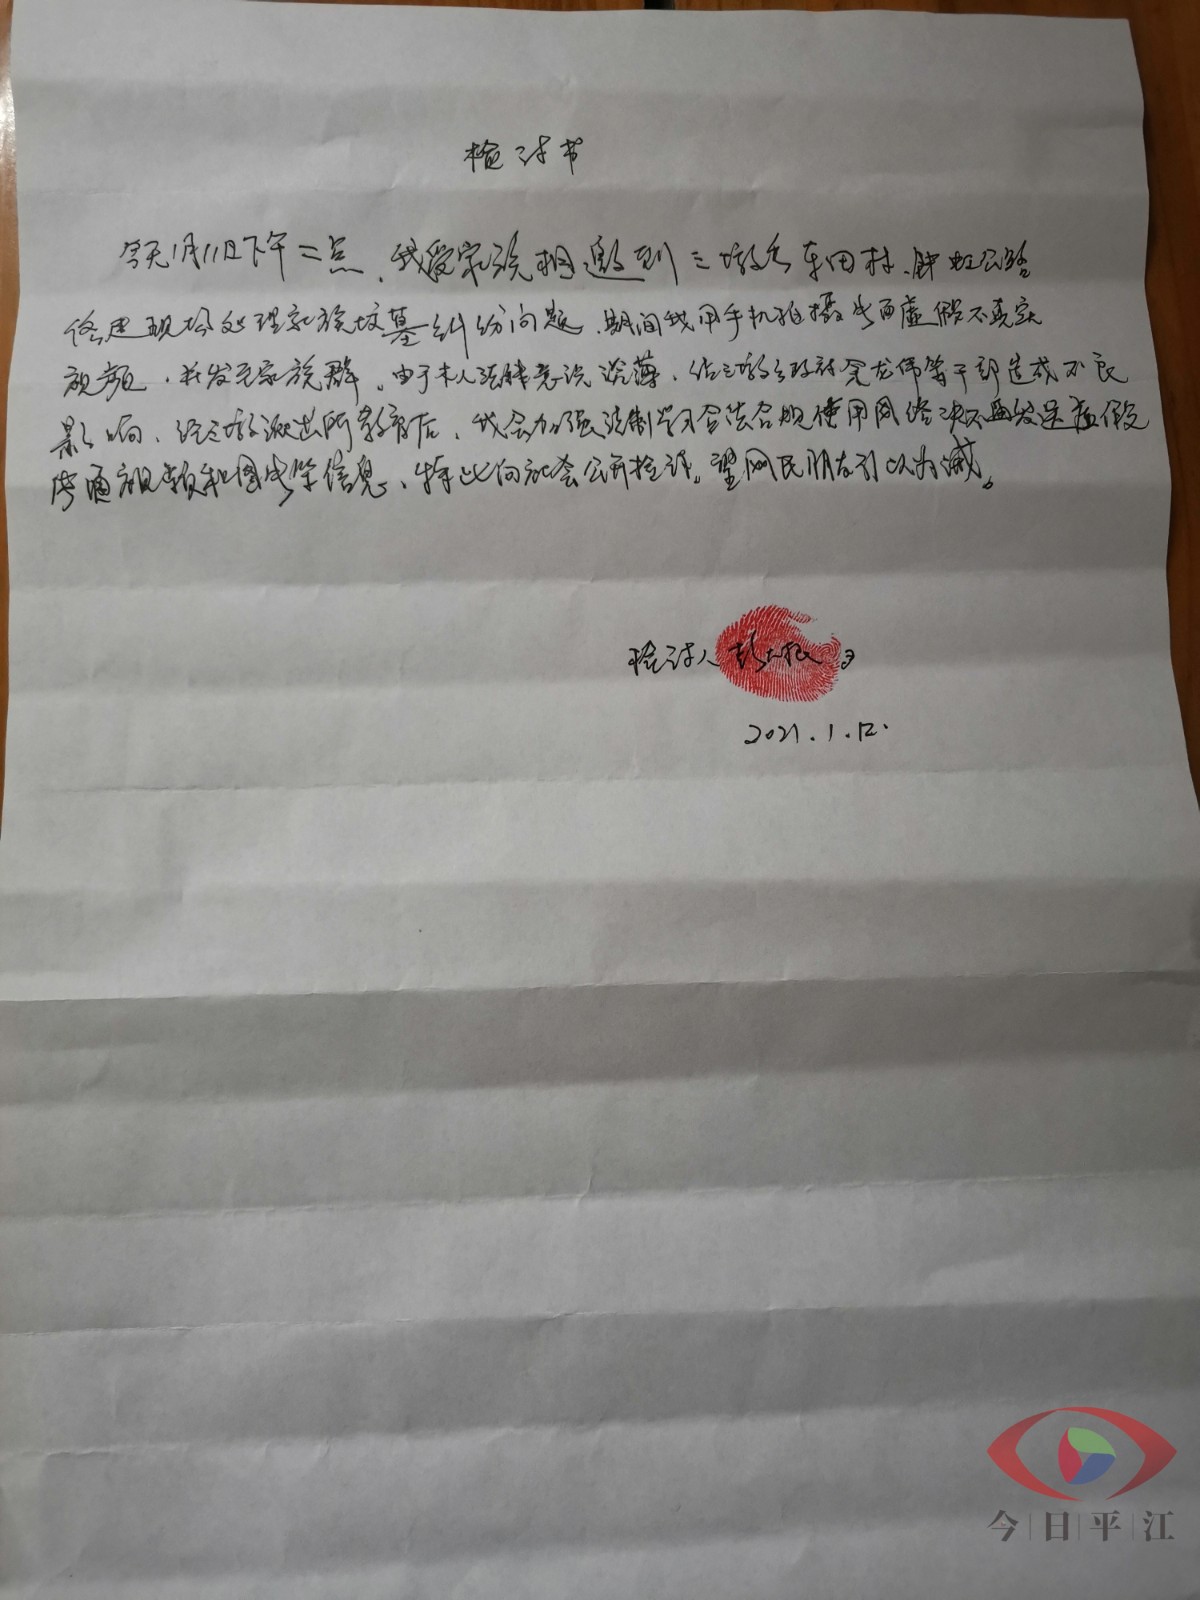 检讨书
今天1月11日下午二点,我受宗族相邀到三墩乡车田村、钟虹公路
修建现场处理家族坟墓纠纷问题,期间我用手机拍摄片面虚假不真实
视频,并发至家族群。由于本人法律意识淡薄,给三墩乡政府余龙伟等干部造成不良
影响,经三墩派出所教育后,我会加强法制学习合法合规使用网络决不再发送虚假
普通视频和图片等信息、特此向社会公开检讨。望网民朋友引以为诫。
检讨人
2021.1.12.
今日平江